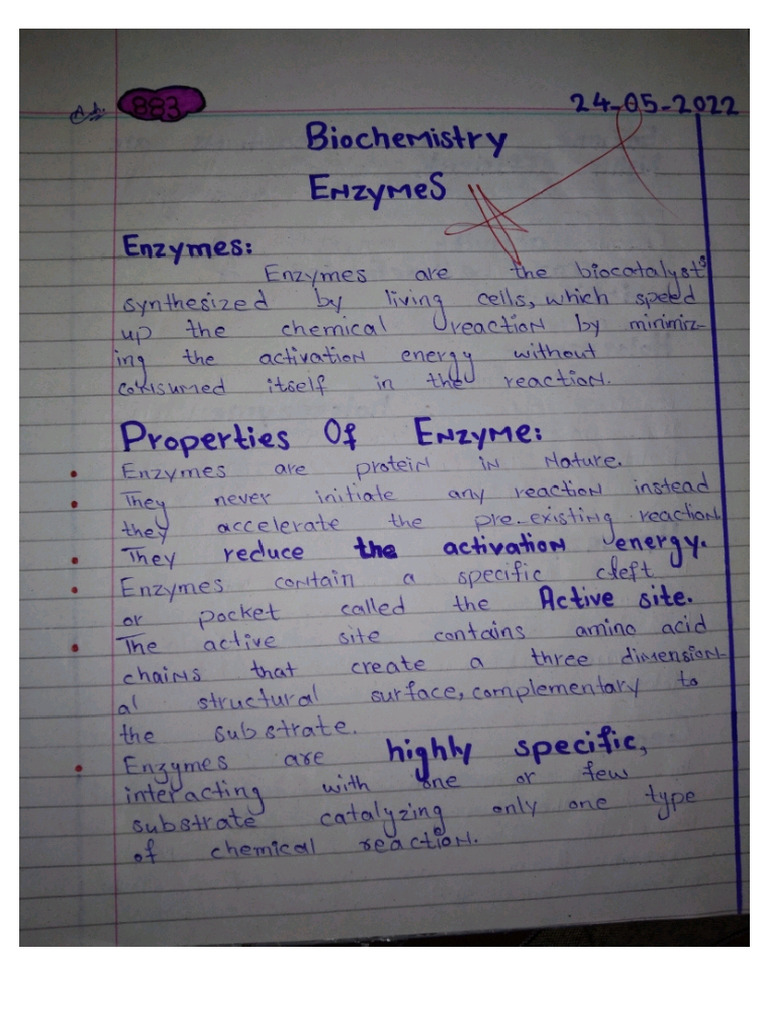 883
24-05-2022
Biochemistry
Enzymes
Enzymes:
Enzymes are the biocatalysts
synthesized by living cells, which speed
up the chemical reaction by minimiz-
ing the activation energy without
consumed itself in the reaction.
Properties Of Enzyme:
• Enzymes are protein in Nature.
• They never initiate any reaction instead
they accelerate the pre-existing reaction.
• They reduce the activation energy.
• Enzymes contain a specific cleft
or pocket called the Active site.
• The active site contains amino acid
chains that create a three dimension-
al structural surface, complementary to
the substrate.
• Enzymes are highly specific,
interacting with one or few
substrate catalyzing only one type
of chemical reaction.